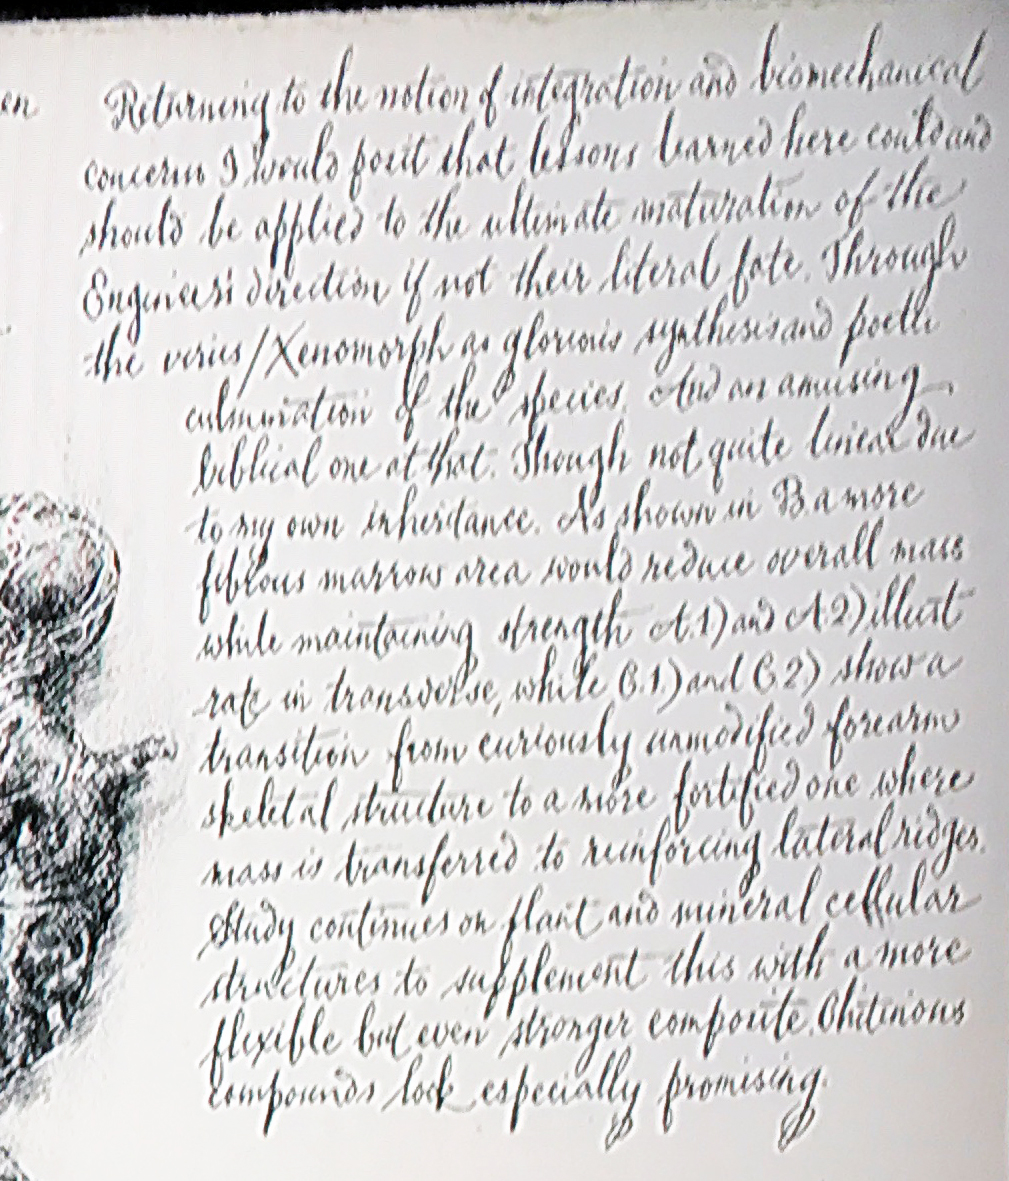 en
Returning to the notion of integration and biomechanical
concerns I would posit that lessons learned here could and
should be applied to the ultimate maturation of the
Engineer's direction if not their literal fate. Through
the virus/Xenomorph as glorious synthesis and poetic
culmination of the species. And an amusing
biblical one at that. Though not quite linear due
to my own inheritance. As shown in B. a more
fibrous marrow area would reduce overall mass
while maintaining strength A.1) and A.2) illust
rate in transverse, while B.1.) and B.2) show a
transition from curiously unmodified forearm
skeletal structure to a more fortified one where
mass is transferred to reinforcing lateral ridges.
Study continues on plant and mineral cellular
structures to supplement this with a more
flexible but even stronger composite. Chitinous
compounds look especially promising.